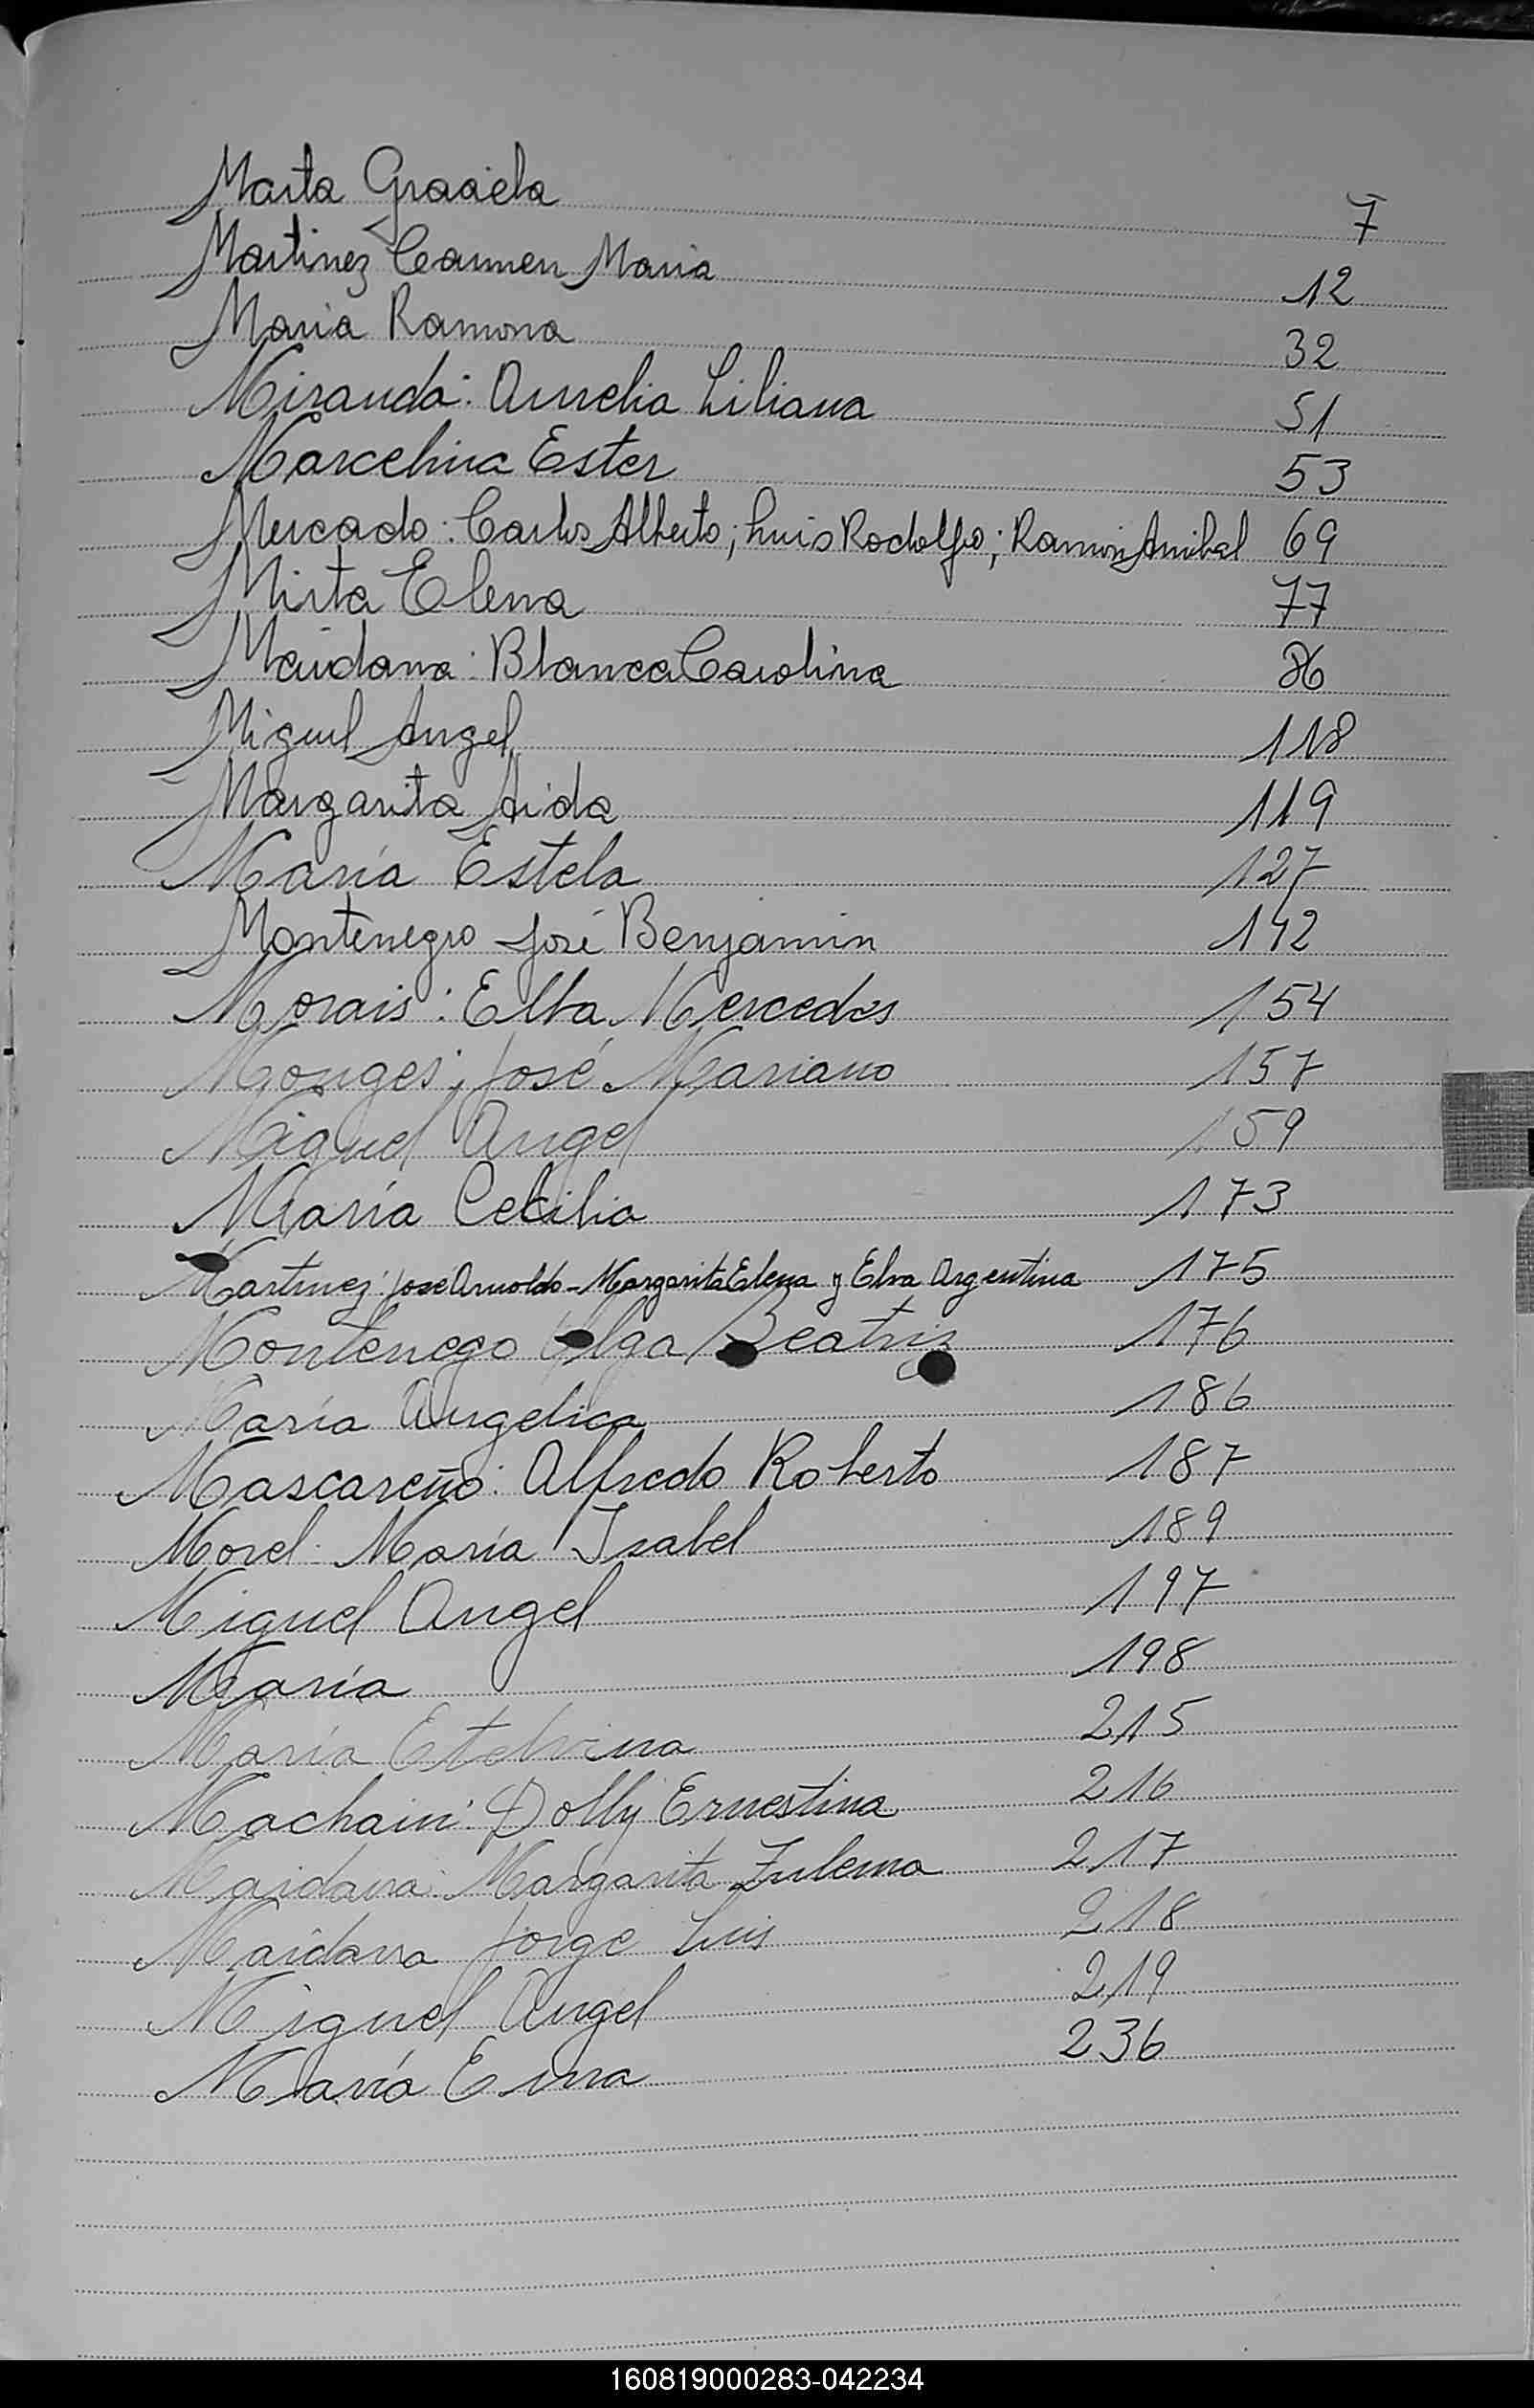 Marta Graciela 7
Martinez Carmen Maria 12
Maria Ramona 32
Miranda: Amelia Liliana 51
Marcelina Ester 53
Mercado: Carlos Alberto; Luis Rodolfo; Ramon Anibal 69
Mirta Elena 77
Maidana: Blanca Carolina 86
Miguel Angel 118
Margarita Aida 119
María Estela 127
Montenegro José Benjamin 142
Morais: Elba Mercedes 154
Monges; José Mariano 157
Miguel Angel 159
María Cecilia 173
Martinez: Jose Arnoldo - Margarita Elena y Elva Argentina 175
Montenego Olga Beatriz 176
María Angelica 186
Mascareño: Alfredo Roberto 187
Morel: María Isabel 189
Miguel Angel 197
María 198
María Etelvina 215
Machain: Dolly Ernestina 216
Maidana: Margarita Zulema 217
Maidana Jorge Luis 218
Miguel Angel 219
María Ema 236
160819000283-042234